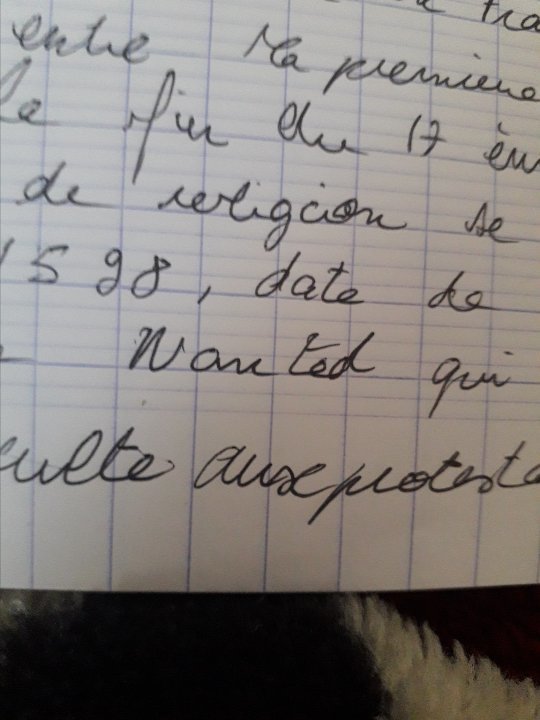 tra
entre la première
la fin du 17 èm
de religion se
1598, date de
Wanted qui
culte aux protesta